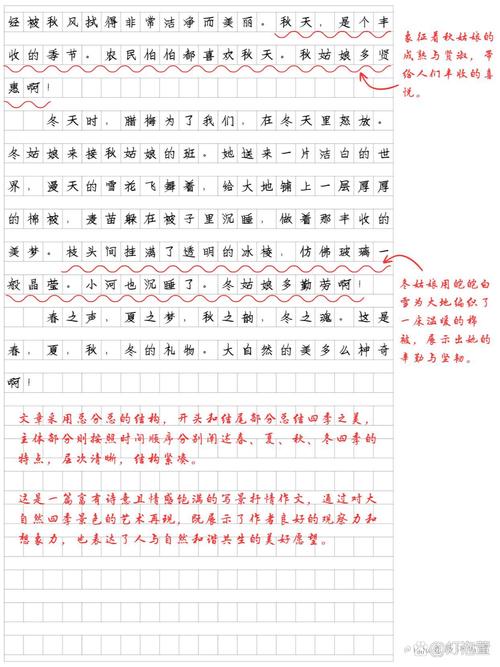 经被秋风拭得非常洁净而美丽。秋天，是个丰
收的季节。农民伯伯都喜欢秋天。秋姑娘多贤
惠啊！
冬天时，腊梅为了我们，在冬天里怒放。
冬姑娘来接秋姑娘的班。她送来一片洁白的世
界，漫天的雪花飞舞着，给大地铺上一层厚厚
的棉被，麦苗躲在被子里沉睡，做着那丰收的
美梦。枝头间挂满了透明的冰棱，仿佛玻璃一
般晶莹。小河也沉睡了。冬姑娘多勤劳啊！
春之声，夏之梦，秋之韵，冬之魂。这是
春，夏，秋，冬的礼物。大自然的美多么神奇
啊！
象征着秋姑娘的
成熟与贤淑，带
给人们丰收的喜
悦。
冬姑娘用皑皑白
雪为大地编织了
一床温暖的棉
被，展示出她的
辛勤与坚韧。
文章采用总分总的结构，开头和结尾部分总结四季之美，
主体部分则按照时间顺序分别阐述春、夏、秋、冬四季的
特点，层次清晰，结构紧凑。
这是一篇富有诗意且情感饱满的写景抒情作文，通过对大
自然四季景色的艺术再现，既展示了作者良好的观察力和
想象力，也表达了人与自然和谐共生的美好愿望。